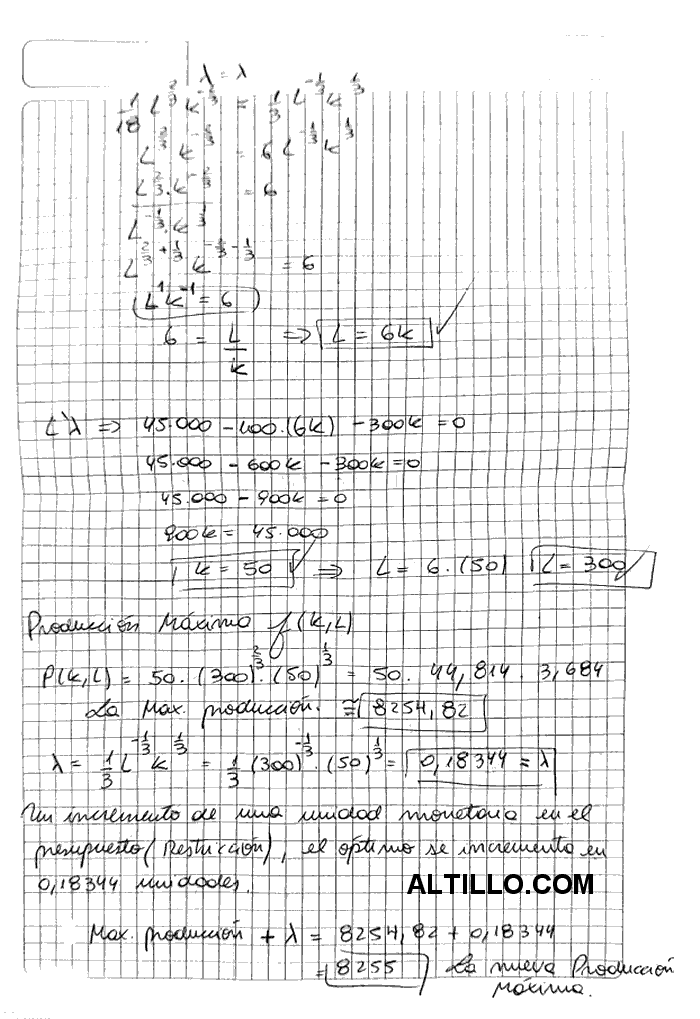 λ = λ
1/18 L^(2/3) k^(-2/3) = 1/3 L^(-1/3) k^(1/3)
L^(2/3) k^(-2/3) = 6 L^(-1/3) k^(1/3)
L^(2/3) . k^(-2/3) / L^(-1/3) . k^(1/3) = 6
L^(2/3 + 1/3) k^(-2/3 - 1/3) = 6
L^1 k^-1 = 6
6 = L/k => L = 6k
L'λ => 45.000 - 100.(6k) - 300k = 0
45.000 - 600k - 300k = 0
45.000 - 900k = 0
900k = 45.000
k = 50 => L = 6.(50) L = 300
Producción Máxima f(k,L)
P(k,L) = 50.(300)^(2/3).(50)^(1/3) = 50. 44,814 . 3,684
La Max. producción. ≅ 8254,82
λ = 1/3 L^(-1/3) k^(1/3) = 1/3 (300)^(-1/3).(50)^(1/3) = 0,18344 = λ
Un incremento de una unidad monetaria en el
presupuesto (Restricción), el óptimo se incrementa en
0,18344 unidades.
ALTILLO.COM
Max. producción + λ = 8254,82 + 0,18344
= 8255 La nueva Producción
Máxima.